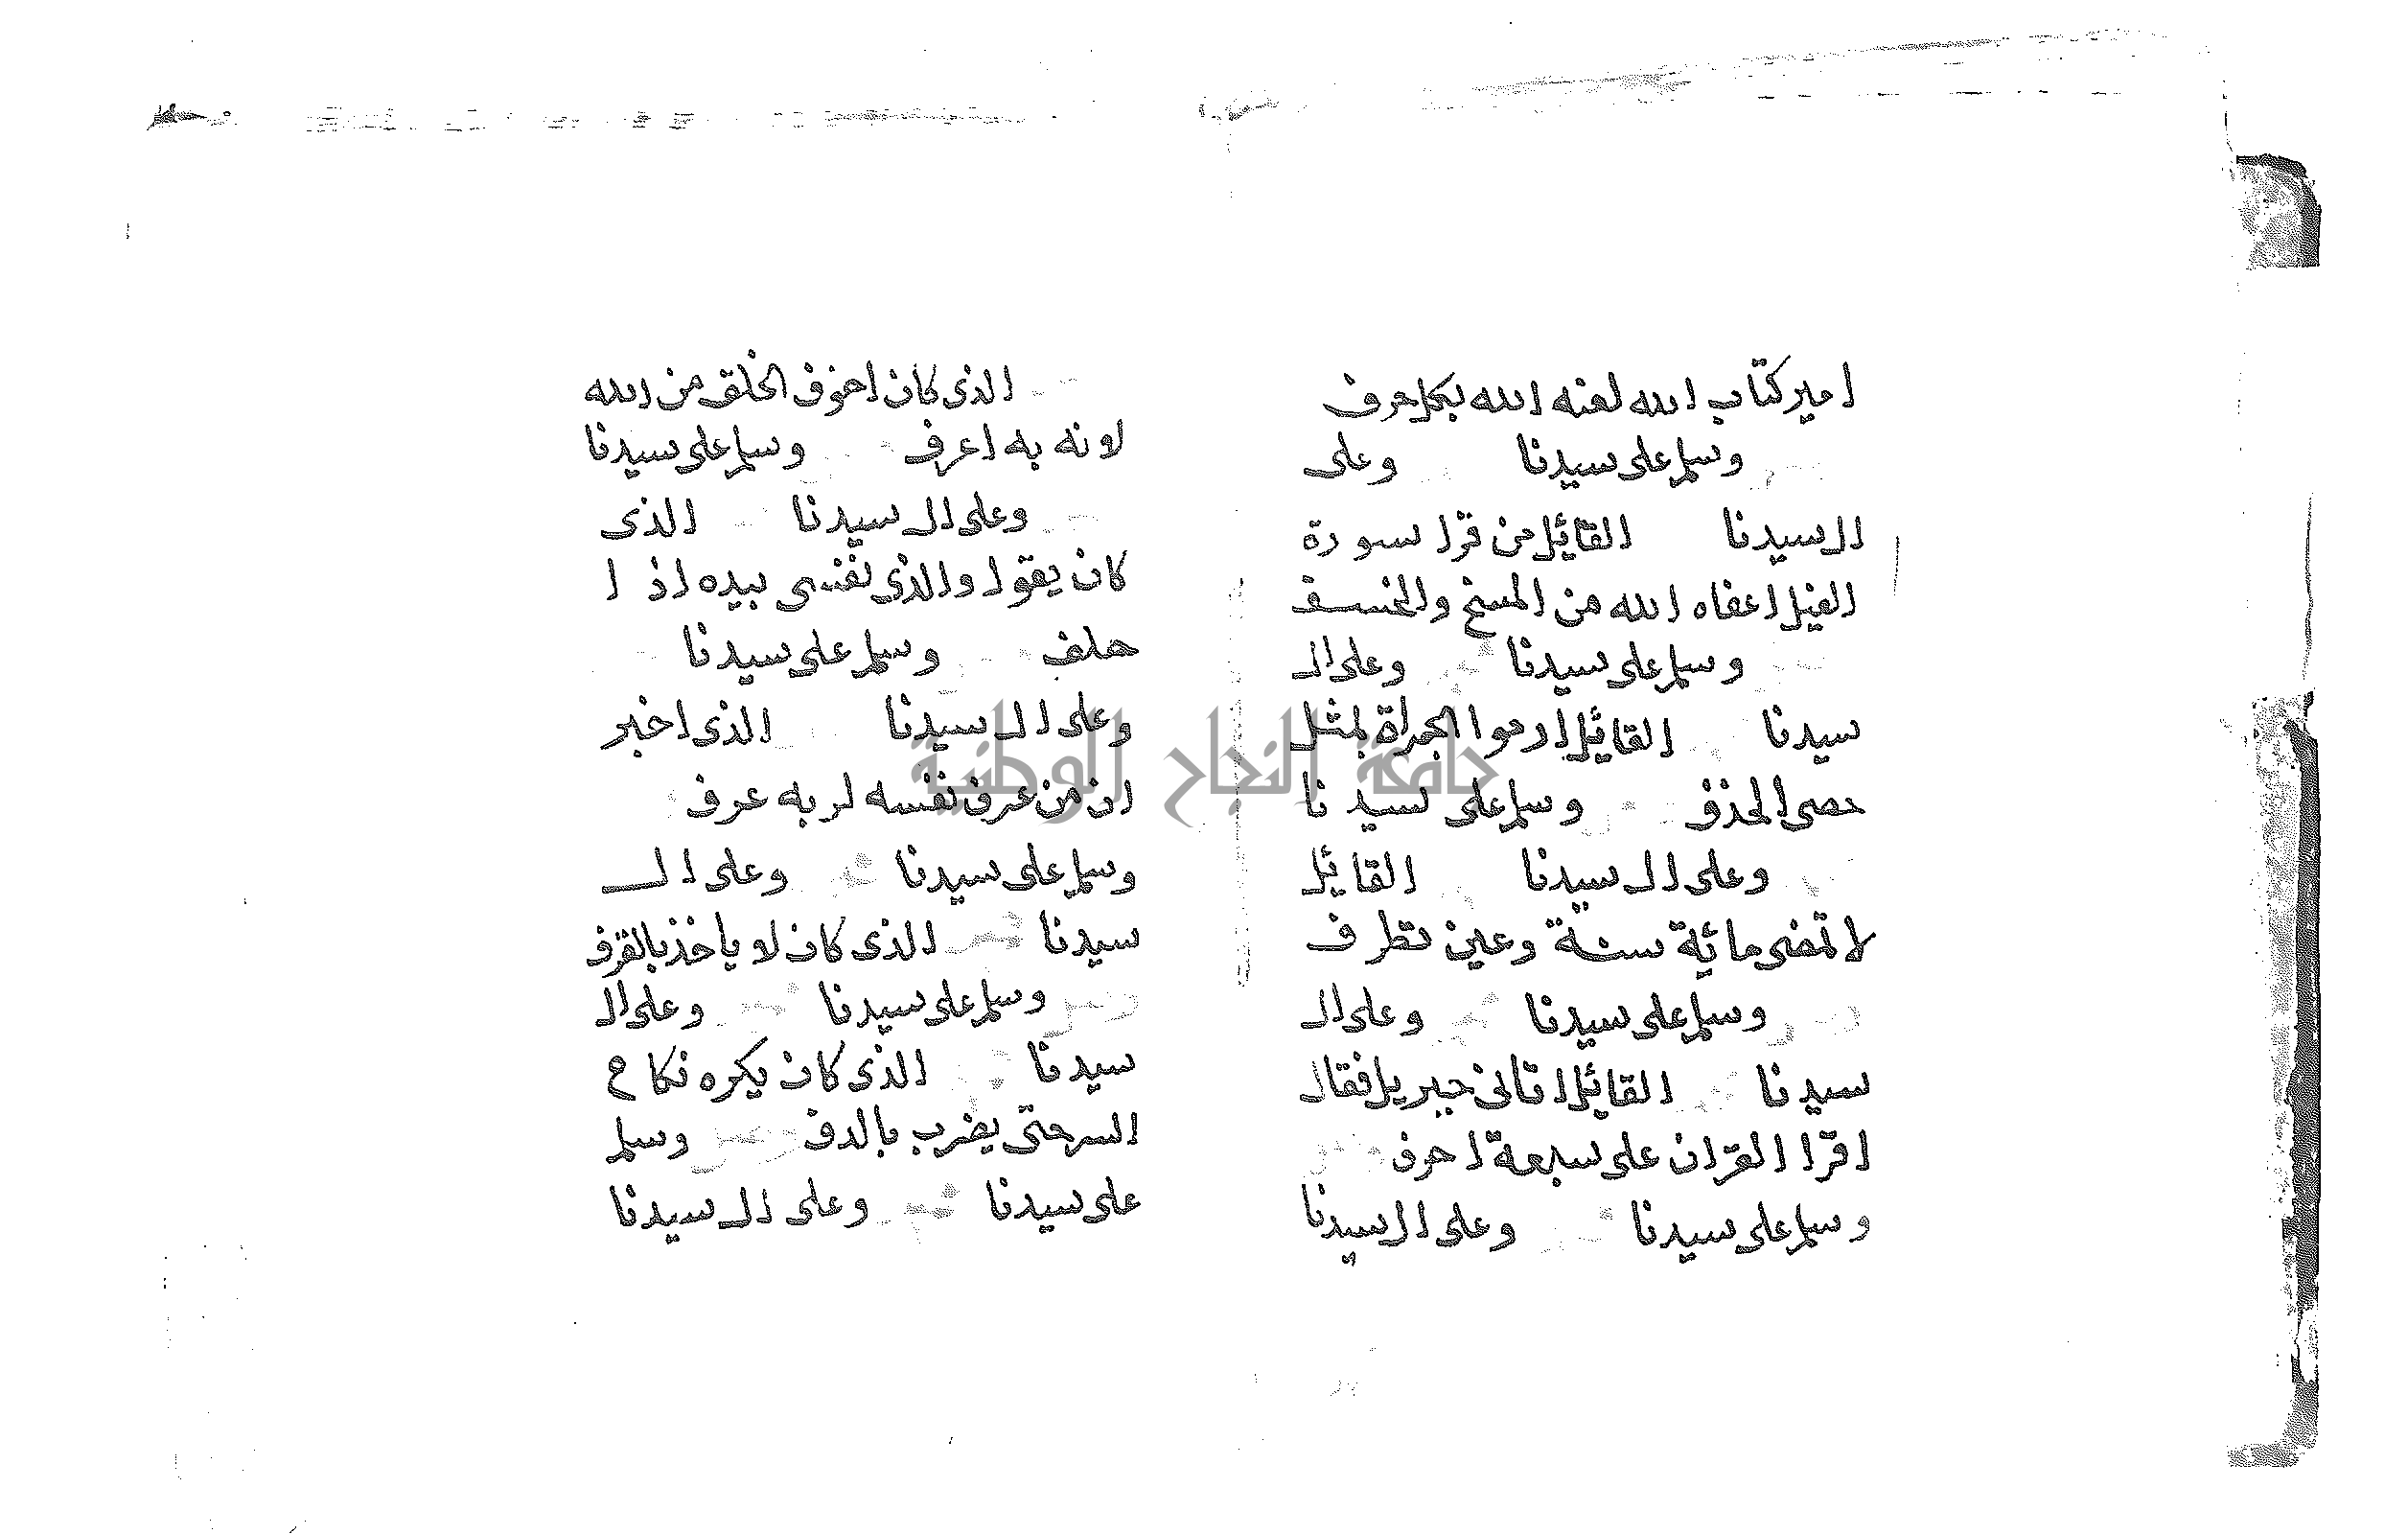 امير كتاب الله لعنه الله بكل حرف
وسلم على سيدنا وعلى
ال سيدنا القائل من قرا سورة
الفيل اعفاه الله من المسخ والخسف
وسلم على سيدنا وعلى ال
سيدنا القائل ارموا الجمراة بمثل
حصى الخذف وسلم على سيدنا
وعلى ال سيدنا القايل
لا تمضى مائية سنة وعين تطرف
وسلم على سيدنا وعلى ال
سيدنا القائل اتانى جبريل فقال
اقرا القران على سبعة احرف
وسلم على سيدنا وعلى ال سيدنا
الذى كان اخوف الخلق من الله
لانه به اعرف وسلم على سيدنا
وعلى ال سيدنا الذى
كان يقول والذى نفسى بيده اذا
حلف وسلم على سيدنا
وعلى ال سيدنا الذى اخبر
ان من عرف نفسه لربه عرف
وسلم على سيدنا وعلى ال
سيدنا الذى كان لا ياخذ بالقرف
وسلم على سيدنا وعلى ال
سيدنا الذى كان يكره نكاح
السر حتى يضرب بالدف وسلم
على سيدنا وعلى ال سيدنا
جامعة النجاح الوطنية